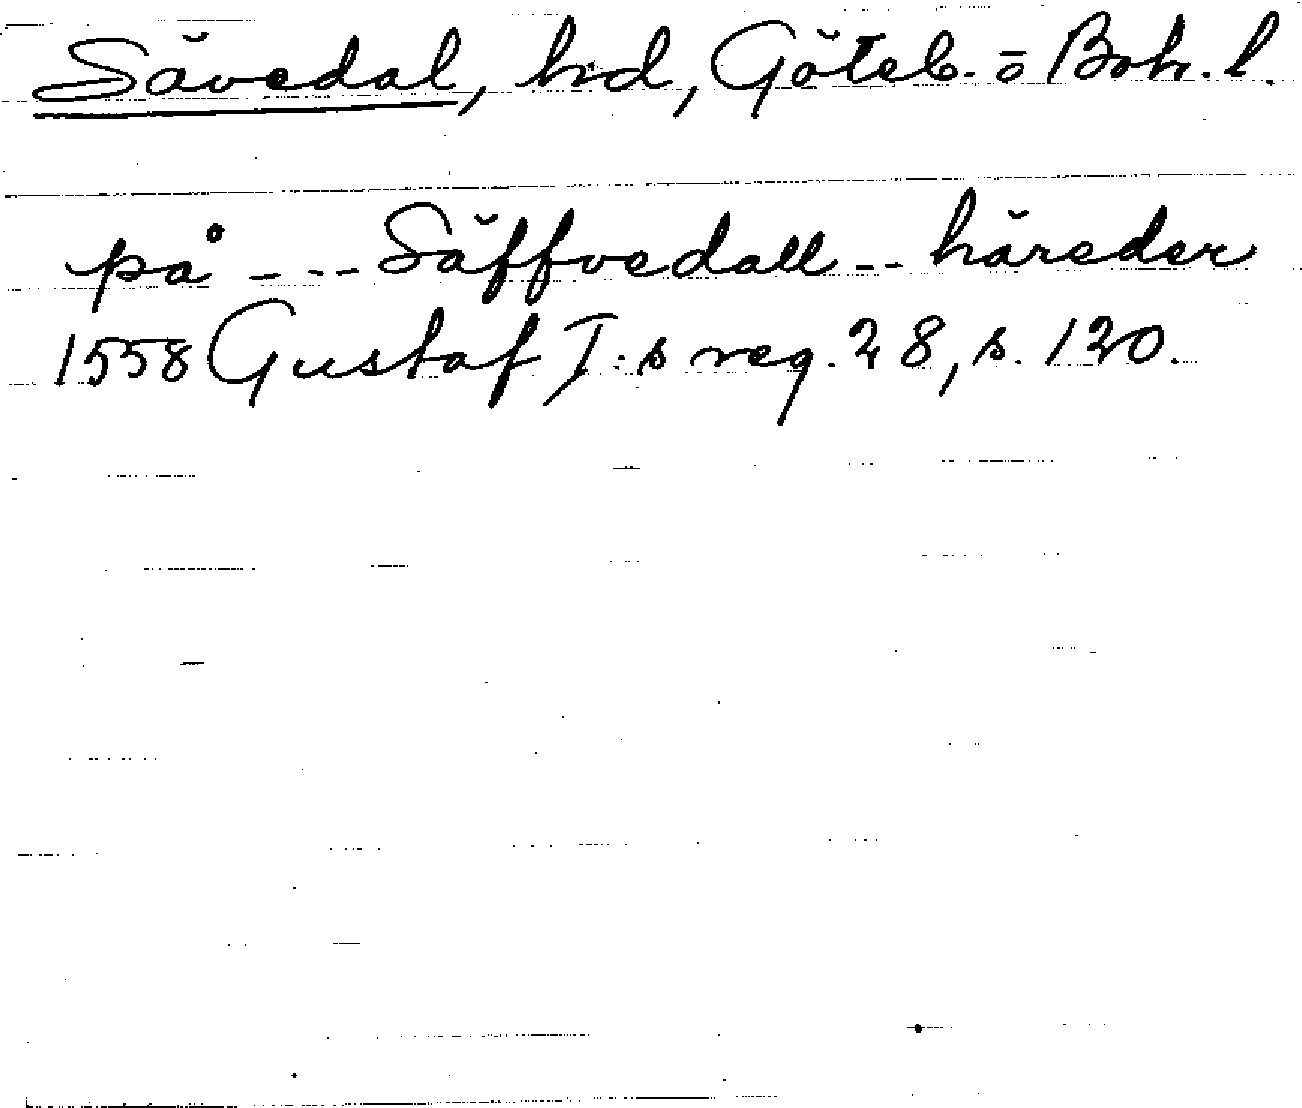 Sävedal, hd, Göteb. o Boh. l.
på - - - Säffvedall - - häreder
1558 Gustaf I:s reg. 28, s. 120.